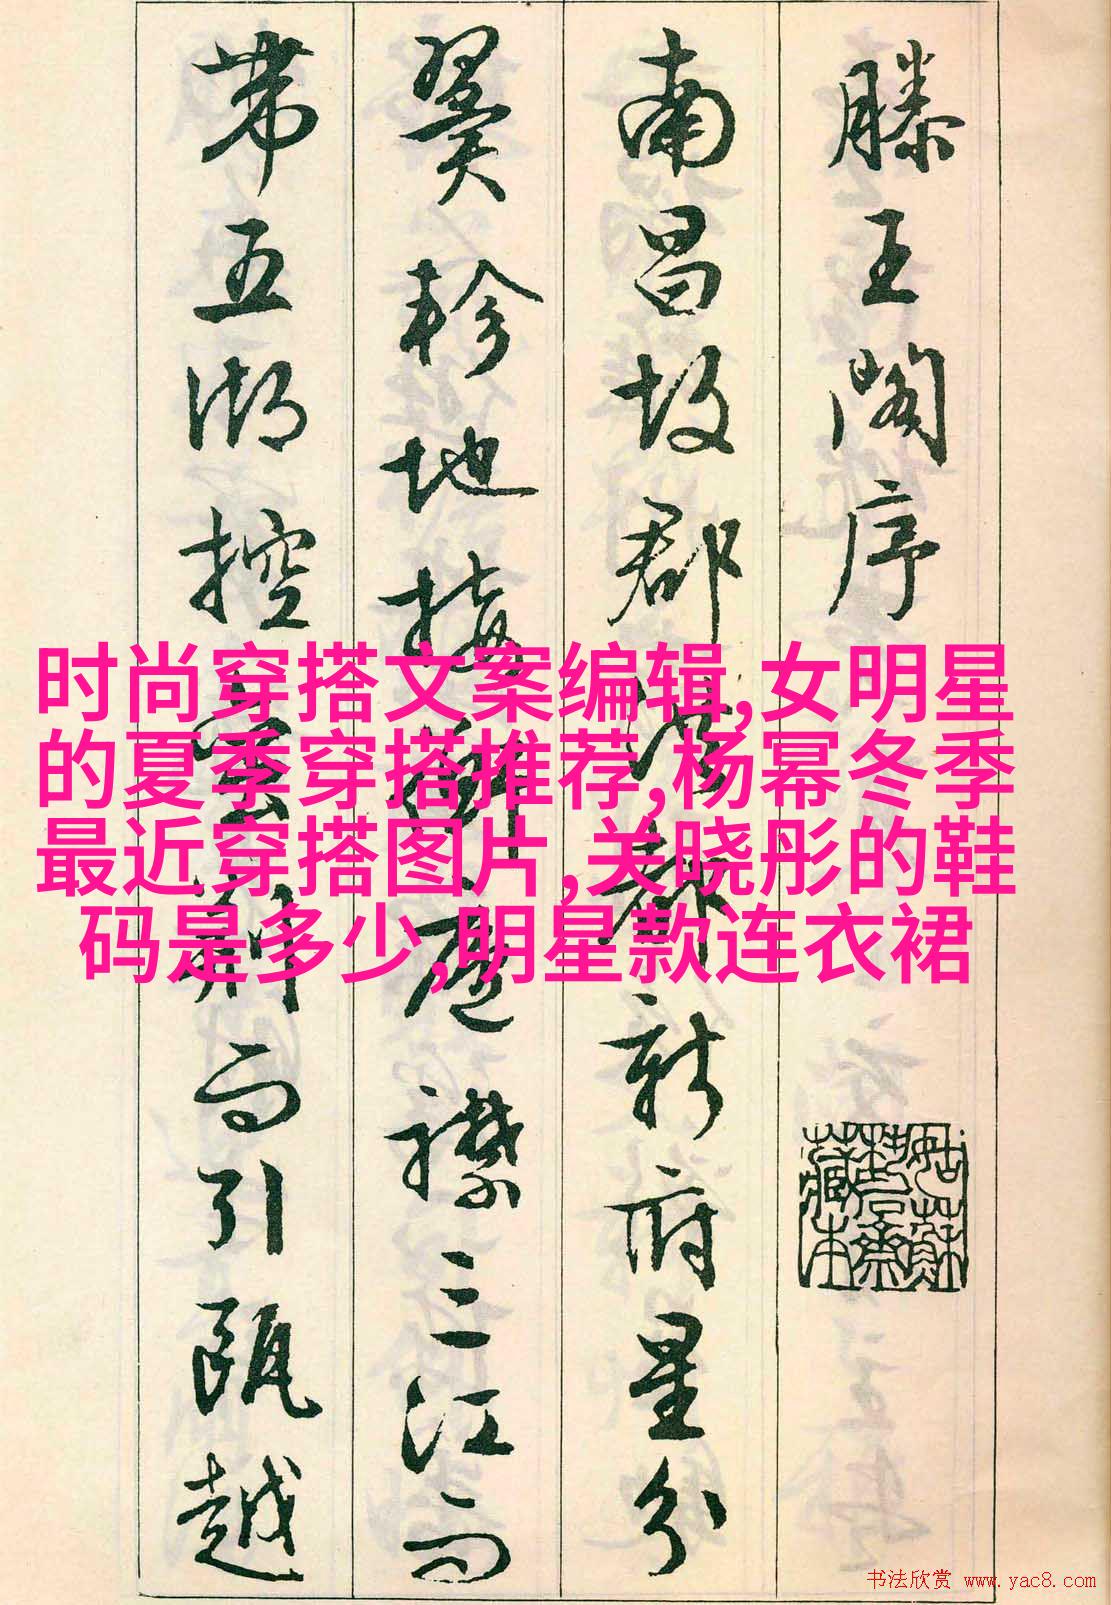 滕王閣序
南昌故郡洪都新府星分
翼軫地接衡廬襟三江而
帶五湖控蠻荊而引甌越
时尚穿搭文案编辑,女明星
的夏季穿搭推荐,杨幂冬季
最近穿搭图片,关晓彤的鞋
码是多少,明星款连衣裙
姑蘇
藏本
书法欣赏 www.yac8.com